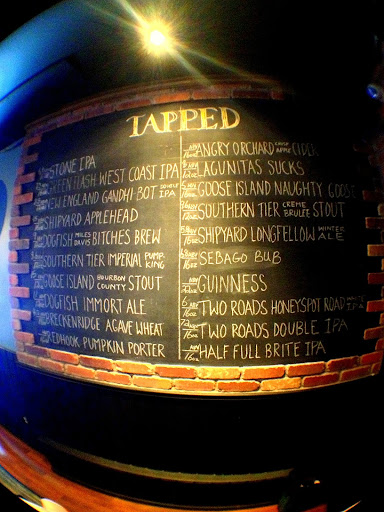 TAPPED
STONE IPA
GREEN FLASH WEST COAST IPA
NEW ENGLAND GANDHI-BOT DOUBLE IPA
SHIPYARD APPLEHEAD
DOGFISH MILES DAVIS BITCHES BREW
SOUTHERN TIER IMPERIAL PUMP KING
GOOSE ISLAND BOURBON COUNTY STOUT
DOGFISH IMMORT ALE
BRECKENRIDGE AGAVE WHEAT
REDHOOK PUMPKIN PORTER
ANGRY ORCHARD CRISP APPLE CIDER
LAGUNITAS SUCKS
GOOSE ISLAND NAUGHTY GOOSE
SOUTHERN TIER CREME BRULEE STOUT
SHIPYARD LONGFELLOW WINTER ALE
SEBAGO BUB
GUINNESS
TWO ROADS HONEYSPOT ROAD WHITE IPA
TWO ROADS DOUBLE IPA
HALF FULL BRITE IPA